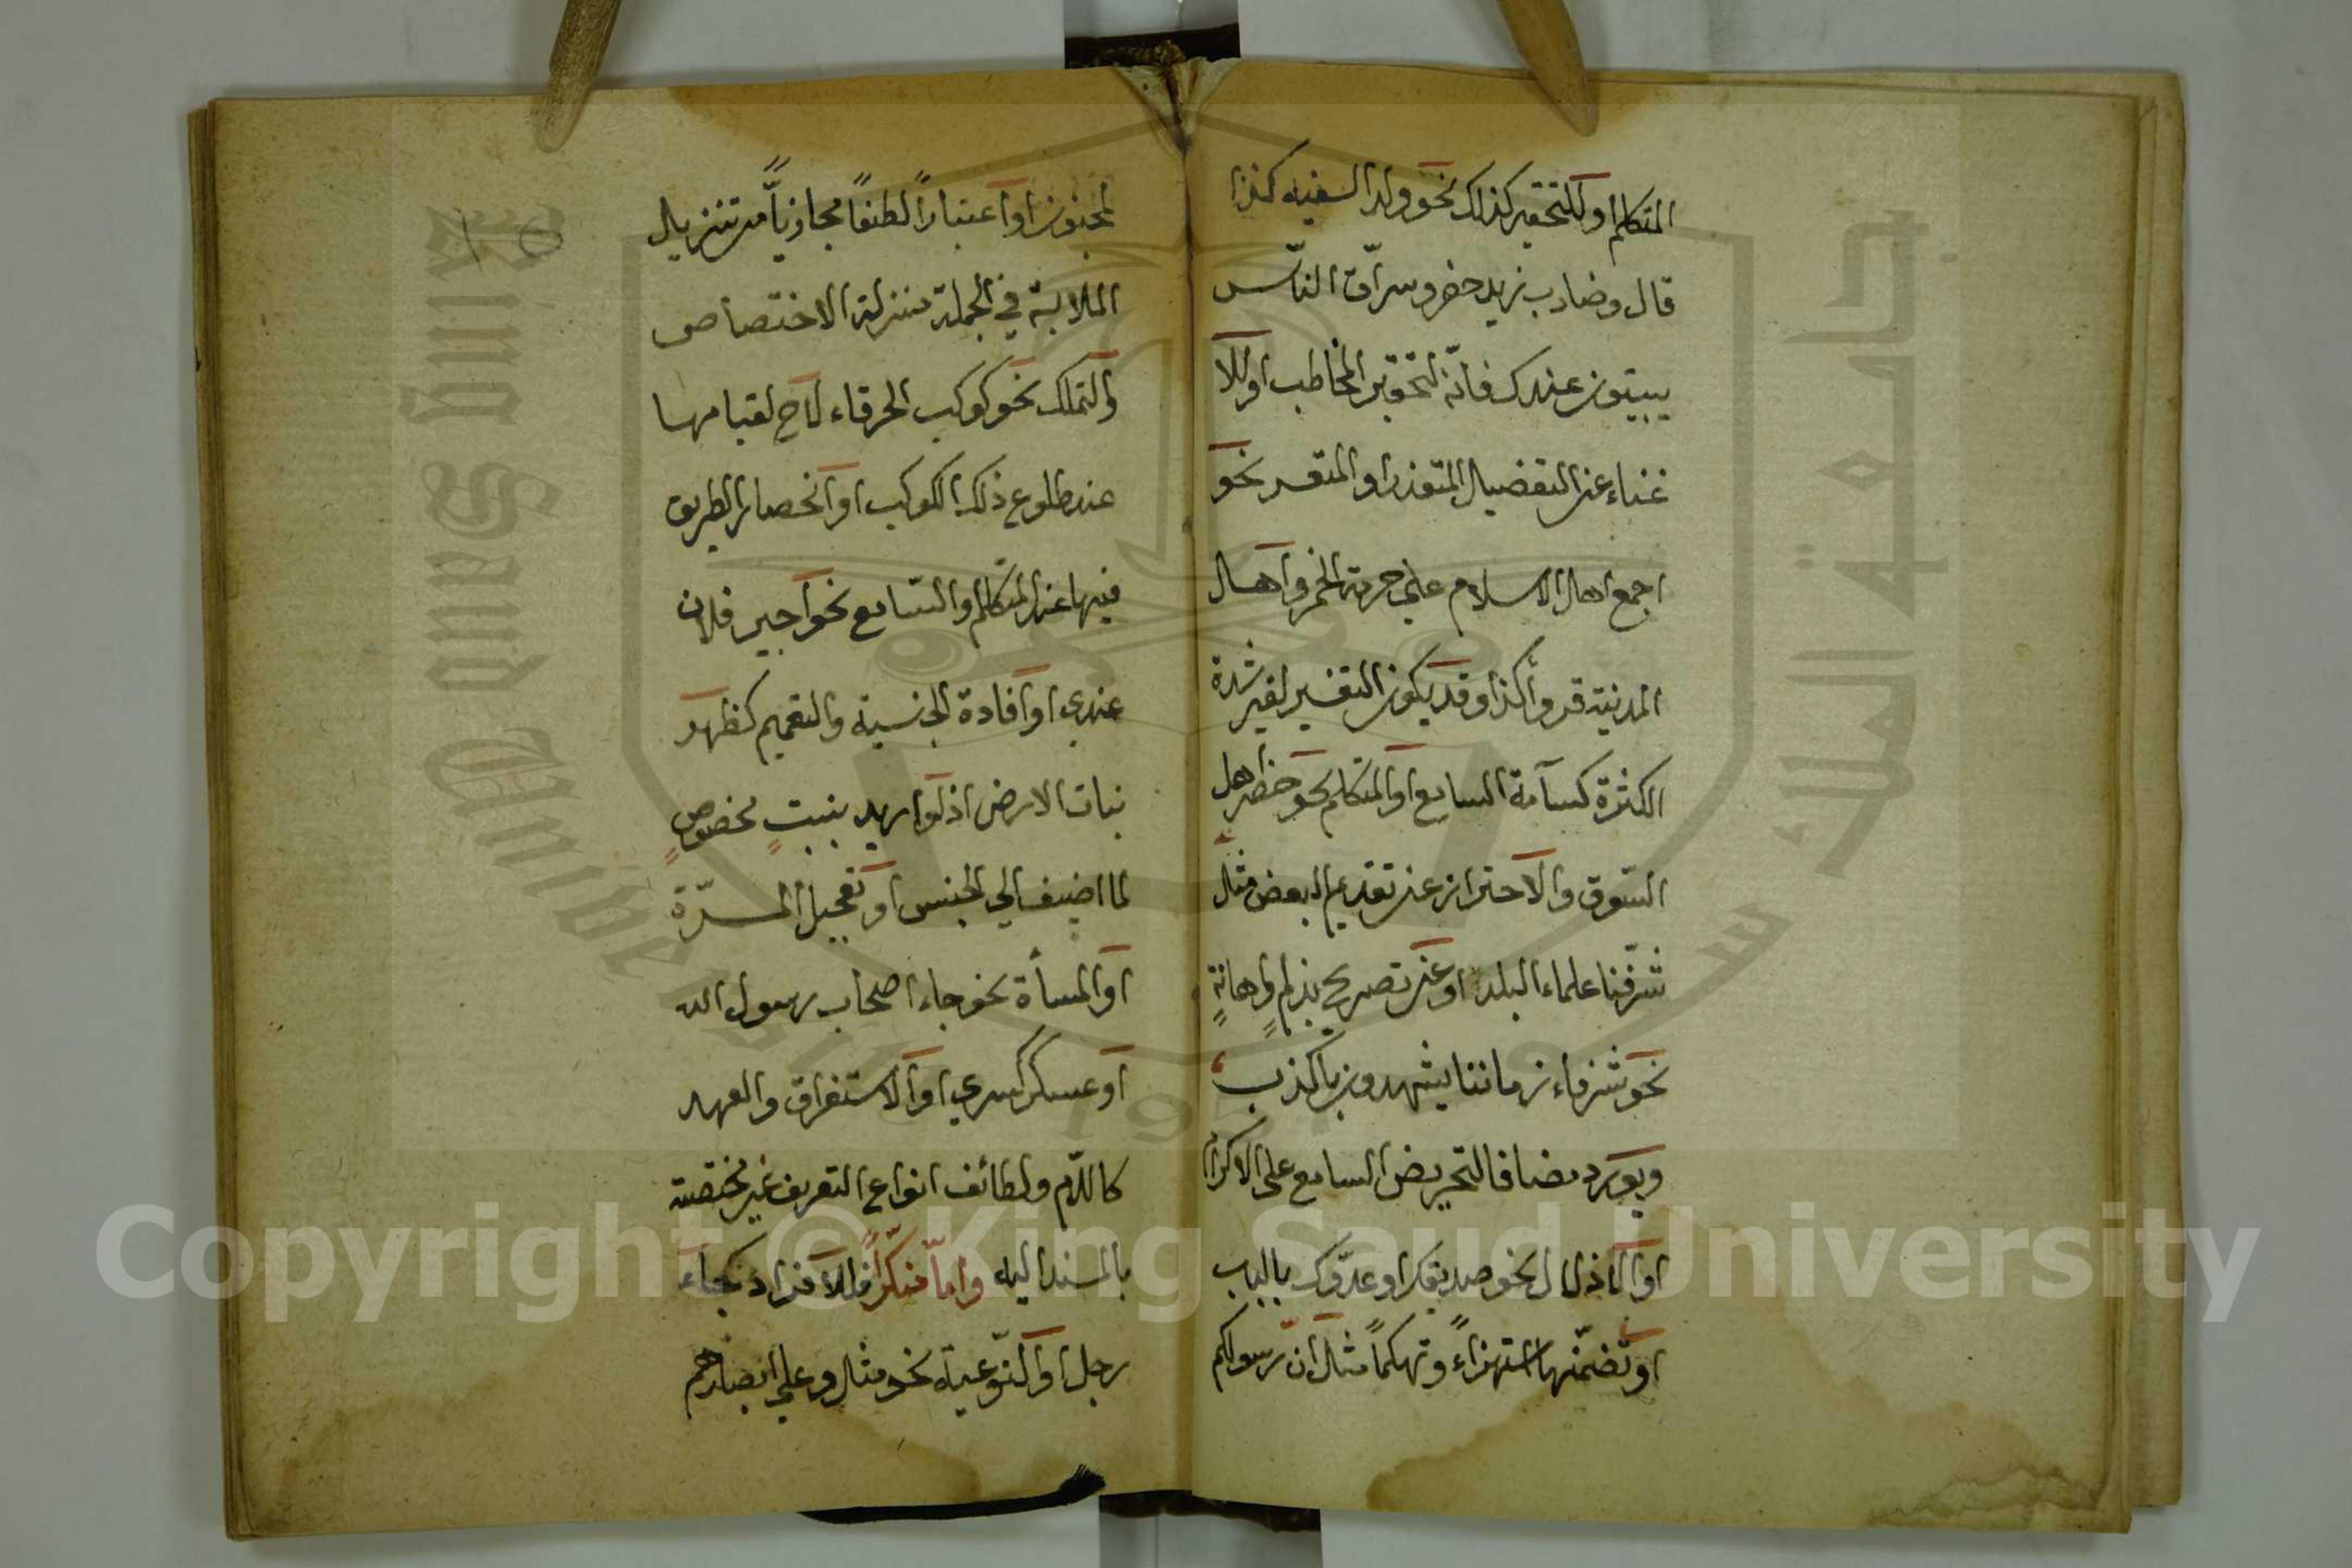 المتكلم او للتحقير كذلك نحو ولد السفيه كذا
قال وضارب زيد حضر وسراق الناس
يبيتون عندك فانه لتحقير المخاطب او للا
غناء عن التفصيل المتعذر او المتعسر نحو
اجمع اهل الاسلام على حرمة الخمر واهل
المدينة قروأ كذا وقد يكون التعسير لغير شدة
الكثرة كسآمة السامع او المتكلم نحو حضر اهل
السوق والاحتراز عن تقديم البعض مثل
شرفنا علماء البلد او عن تصريح بذم واهانة
نحو شرفاء زماننا يشهدون بالكذب
ويورد مضافا لتحريض السامع على الاكرام
او الاذلال نحو صديقك او عدوك بالباب
او تضمنها استهزاء وتهكما مثل ان رسولكم
لمجنون او اعتبارا لطيفا مجازيا من تنزيل
الملابسة في الجملة منزلة الاختصاص
والتملك نحو كوكب الخرقاء لاح لقيامها
عند طلوع ذلك الكوكب او انحصار الطريق
فيها عند المتكلم او السامع نحو اجير فلان
عندي او افادة الجنسية والتعميم كظهر
نبات الارض اذ لو اريد بنبت مخصوص
لما اضيف الى الجنس او تعجيل المسرة
او المسأة نحو جاء اصحاب رسول الله
او عسكر كسرى او الاستغراق والعهد
كاللام ولطائف انواع التعريف غير مختصة
بالمسند اليه واما منكرا فللافراد كجاء
رجل او النوعية نحو مثل وعلى ابصارهم
١٥
جامعة الملك سعود
King Saud University
1957
Copyright © King Saud University